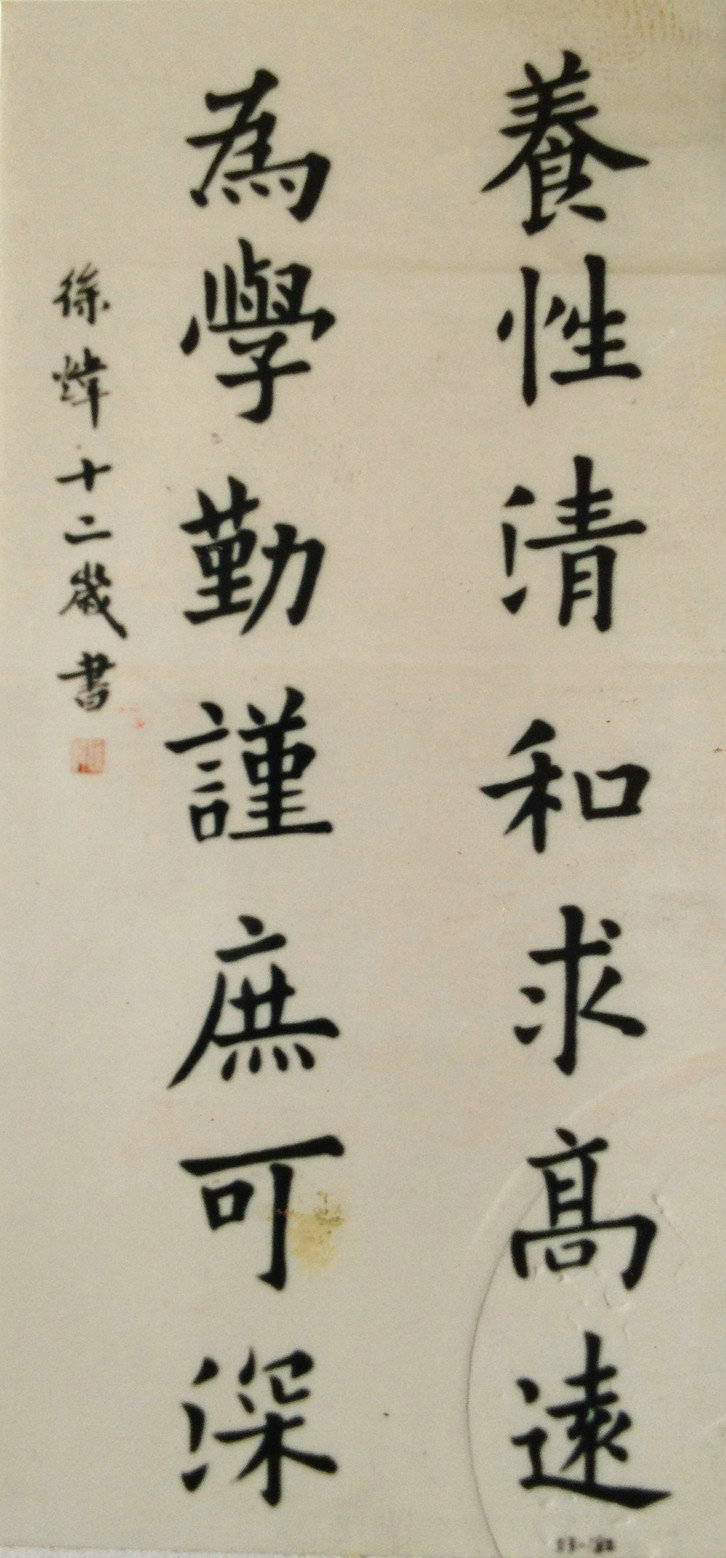 養性清和求高遠
為學勤謹庶可深
徐煒十二歲書